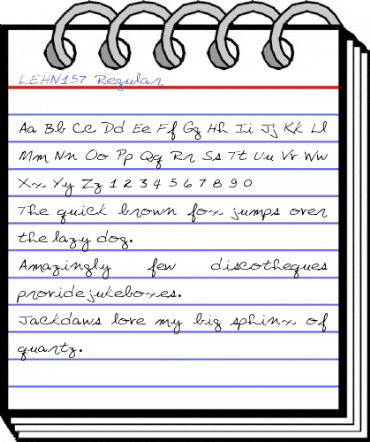 LEHN157 Regular
Aa Bb Cc Dd Ee Ff Gg Hh Ii Jj Kk Ll
Mm Nn Oo Pp Qq Rr Ss Tt Uu Vv Ww
Xx Yy Zz 1 2 3 4 5 6 7 8 9 0
The quick brown fox jumps over
the lazy dog.
Amazingly few discotheques
provide jukeboxes.
Jackdaws love my big sphinx of
quartz.